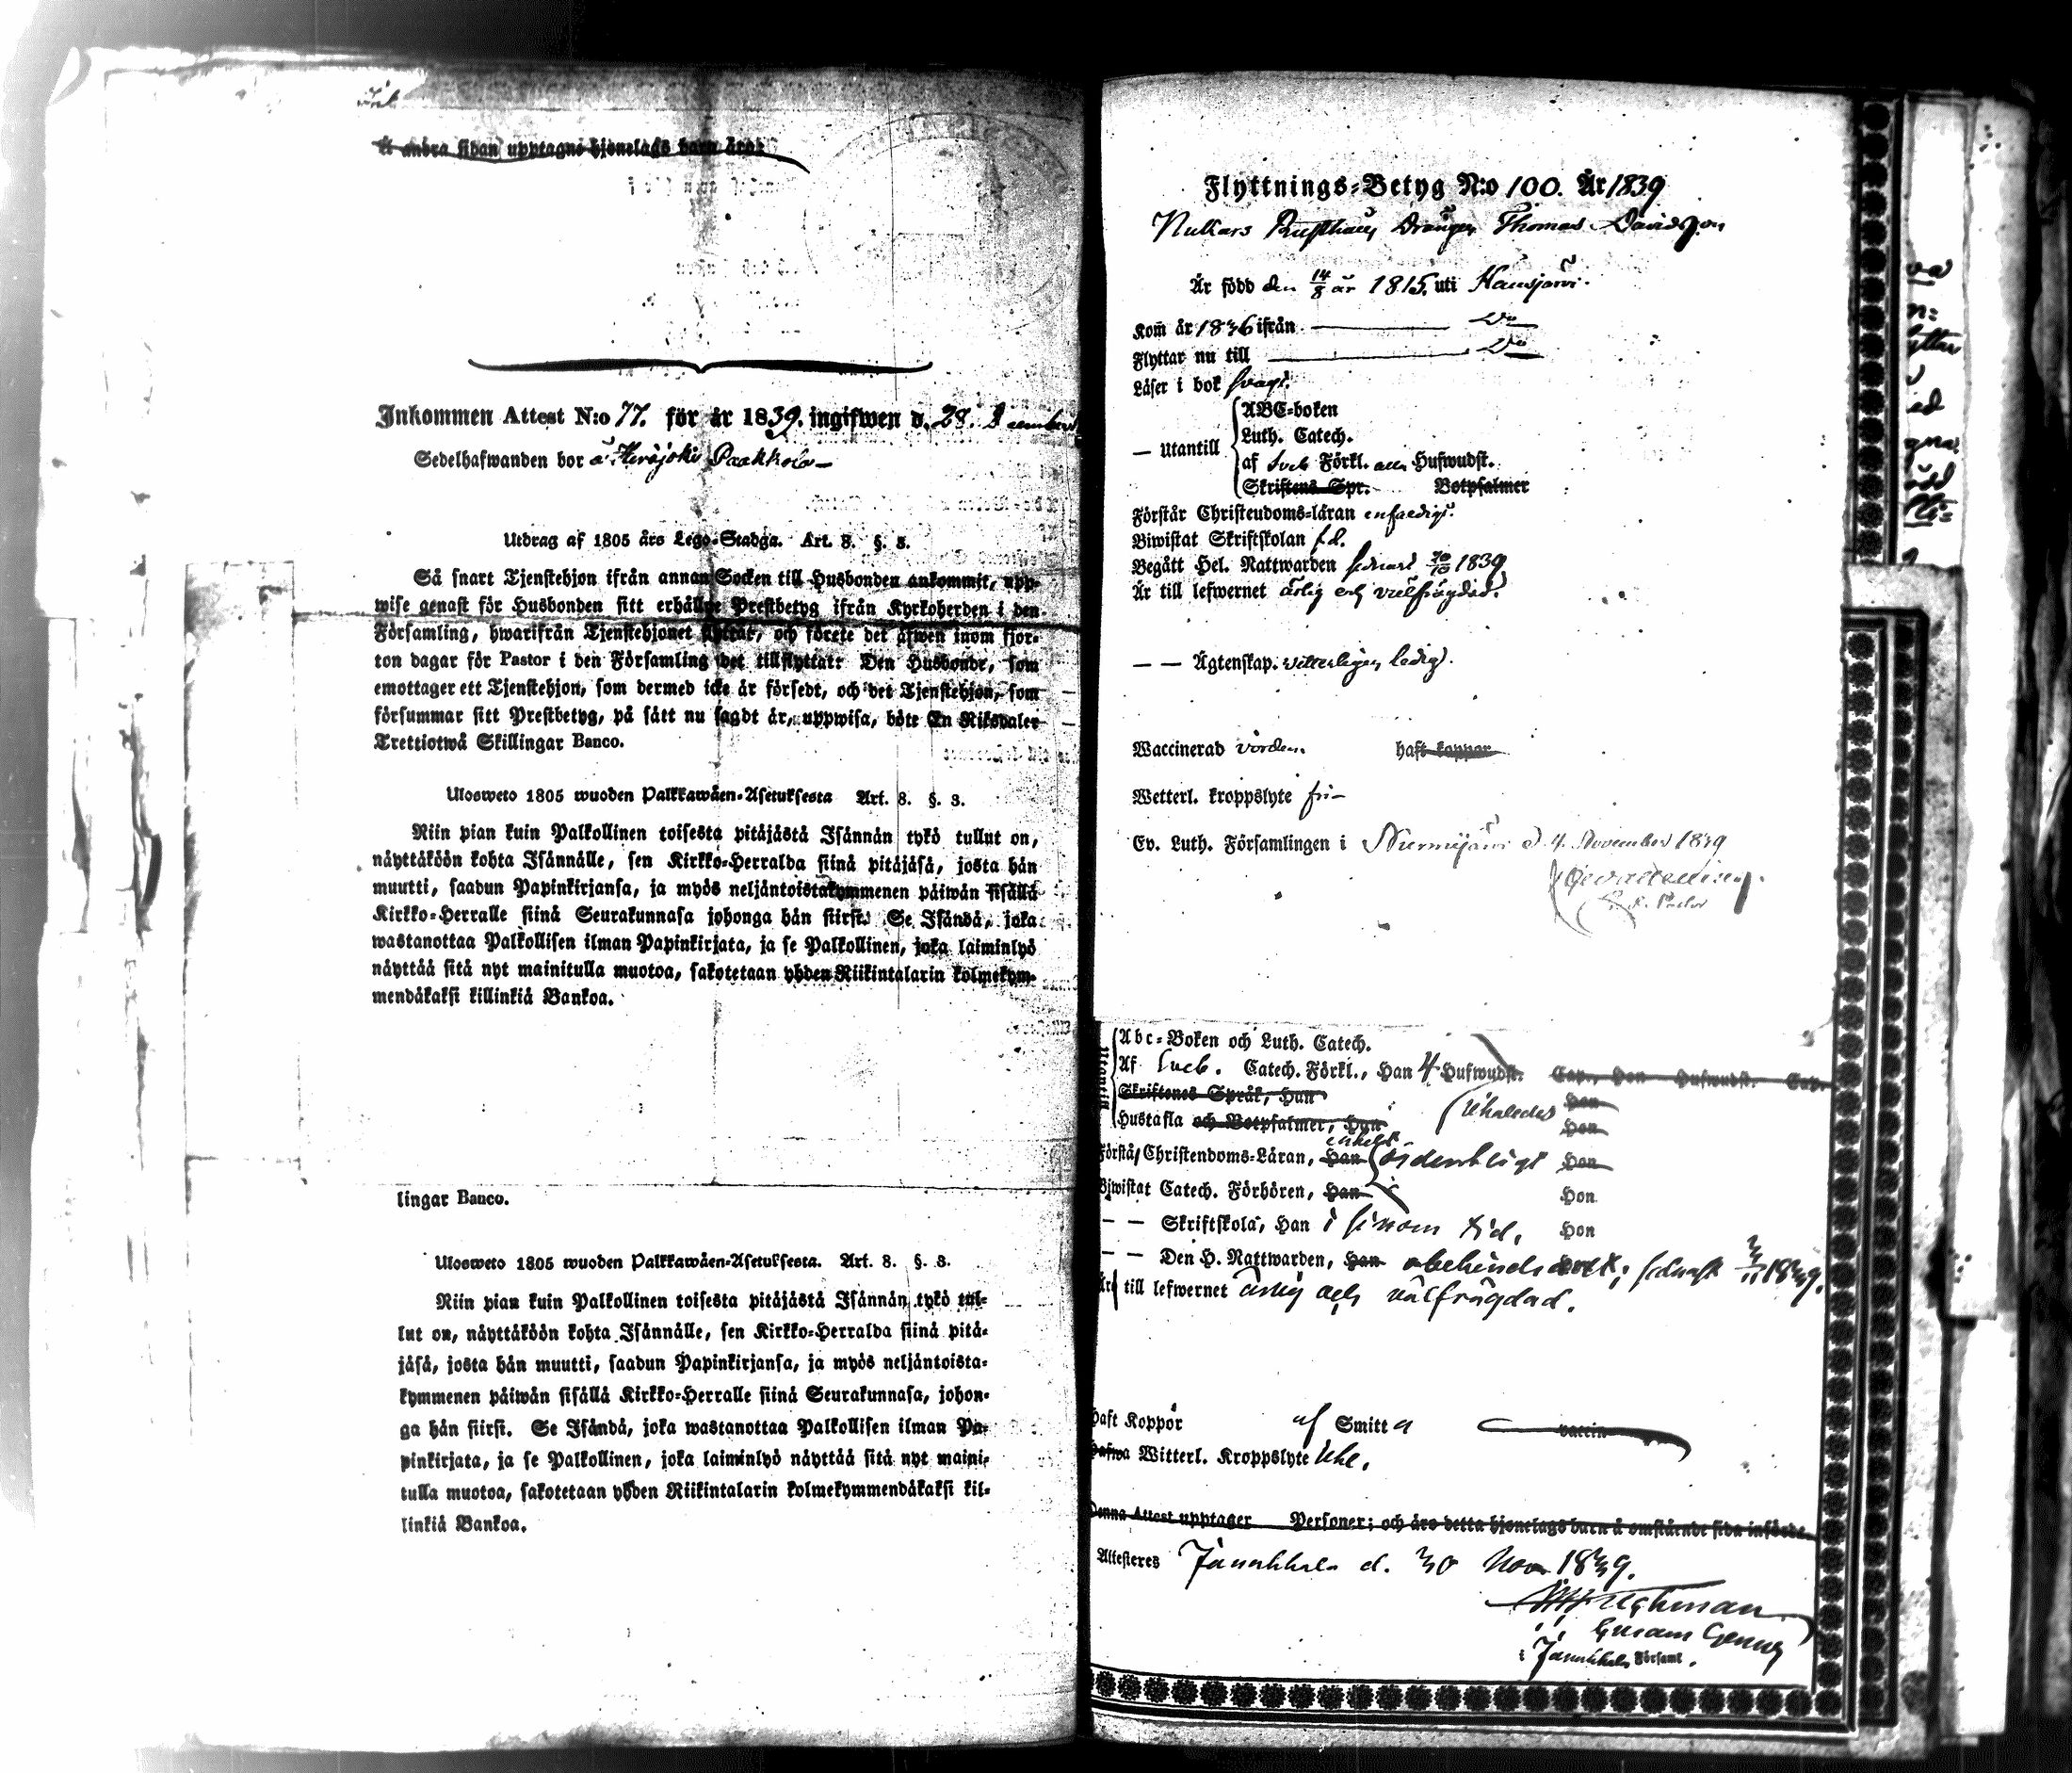 Å andra sidan upptagne hjonelags barn äro:
Inkommen Attest N:o 77. för år 1839. ingifwen d. 28. December
Sedelhafwanden bor å Herajoki Paakkola
Utdrag af 1805 års Lego-Stadga. Art. 8. §. 3.
Så snart Tjenstehjon ifrån annan Socken till Husbonden ankommit, upp-
wise genast för Husbonden sitt erhållne Prestbetyg ifrån Kyrkoherden i den
Församling, hwarifrån Tjenstehjonet flyttat, och förete det äfwen inom fjor-
ton dagar för Pastor i den Församling det tillflyttat: Den Husbonde, som
emottager ett Tjenstehjon, som dermed icke är försedt, och det Tjenstehjon, som
försummar sitt Prestbetyg, på sätt nu sagdt är, uppwisa, böte En Riksdaler
Trettiotwå Skillingar Banco.
Ulosweto 1805 wuoden Palkkawäen-Asetuksesta Art. 8. §. 3.
Niin pian kuin Palkollinen toisesta pitäjästä Isännän tykö tullut on,
näyttäköön kohta Isännälle, sen Kirkko-Herralda siinä pitäjäsä, josta hän
muutti, saadun Papinkirjansa, ja myös neljäntoistakymmenen päiwän sisällä
Kirkko-Herralle siinä Seurakunnasa johonga hän siirsi. Se Isändä, joka
wastanottaa Palkollisen ilman Papinkirjata, ja se Palkollinen, joka laiminlyö
näyttää sitä nyt mainitulla muotoa, sakotetaan yhden Riikintalarin kolmekym-
mendäkaksi killinkiä Bankoa.
lingar Banco.
Ulosweto 1805 wuoden Palkkawäen-Asetuksesta. Art. 8. §. 3.
Niin pian kuin Palkollinen toisesta pitäjästä Isännän tykö tul-
lut on, näyttäköön kohta Isännälle, sen Kirkko-Herralda siinä pitä-
jäsä, josta hän muutti, saadun Papinkirjansa, ja myös neljäntoista-
kymmenen päiwän sisällä Kirkko-Herralle siinä Seurakunnasa, johon-
ga hän siirsi. Se Isändä, joka wastanottaa Palkollisen ilman Pa-
pinkirjata, ja se Palkollinen, joka laiminlyö näyttää sitä nyt maini-
tulla muotoa, sakotetaan yhden Riikintalarin kolmekymmendäkaksi kil-
linkiä Bankoa.
Flyttnings-Betyg N:o 100. År 1839
Nukars Rusthålls Drängen Thomas Davidsson
Är född den 14/8 år 1815. uti Hausjärvi.
Kom år 1836 ifrån Do
Flyttar nu till Do
Läser i bok svagt.
— Utantill
ABC-boken
Luth. Catech.
af Sveb Förkl. alla Hufwudst.
Skriftens Spr. Botpsalmer
Förstår Christendoms-läran enfaldigt.
Biwistat Skriftskolan f.d.
Begått Hel. Nattwarden sednast 20/10 1839
Är till lefwernet ärlig och välfrägdad.
— — Ägtenskap. vitterligen ledig.
Waccinerad vorden. haft koppor
Wetterl. kroppslyte fri
Ev. Luth. Församlingen i Nurmijärvi d. 4. November 1839
Pastor
Utantill
Abc-Boken och Luth. Catech.
Af Sveb. Catech. Förkl., Han 4 Hufwudst. Cap., Hon Hufwudst. Cap.
Skriftenes Språk, Han Hon
Hustafla och Botpsalmer, Han Hon
Förstå Christendoms-Läran, Han enkelt ordentligt Hon
Biwistat Catech. Förhören, Han Hon
— — Skriftskola, Han i sinom tid, Hon
— — Den H. Nattwarden, Han obehindradt; sednast 3/11 1839.
Äro till lefwernet ärlig och välfrägdad.
Haft Koppor af Smitta vaccin
Hafwa Witterl. Kroppslyte
Denna Attest upptager Personer; och äro detta hjonelags barn å omstående sida införde.
Attesteres Janakkala d. 30 Nov 1839.
i Janakkala Församl.